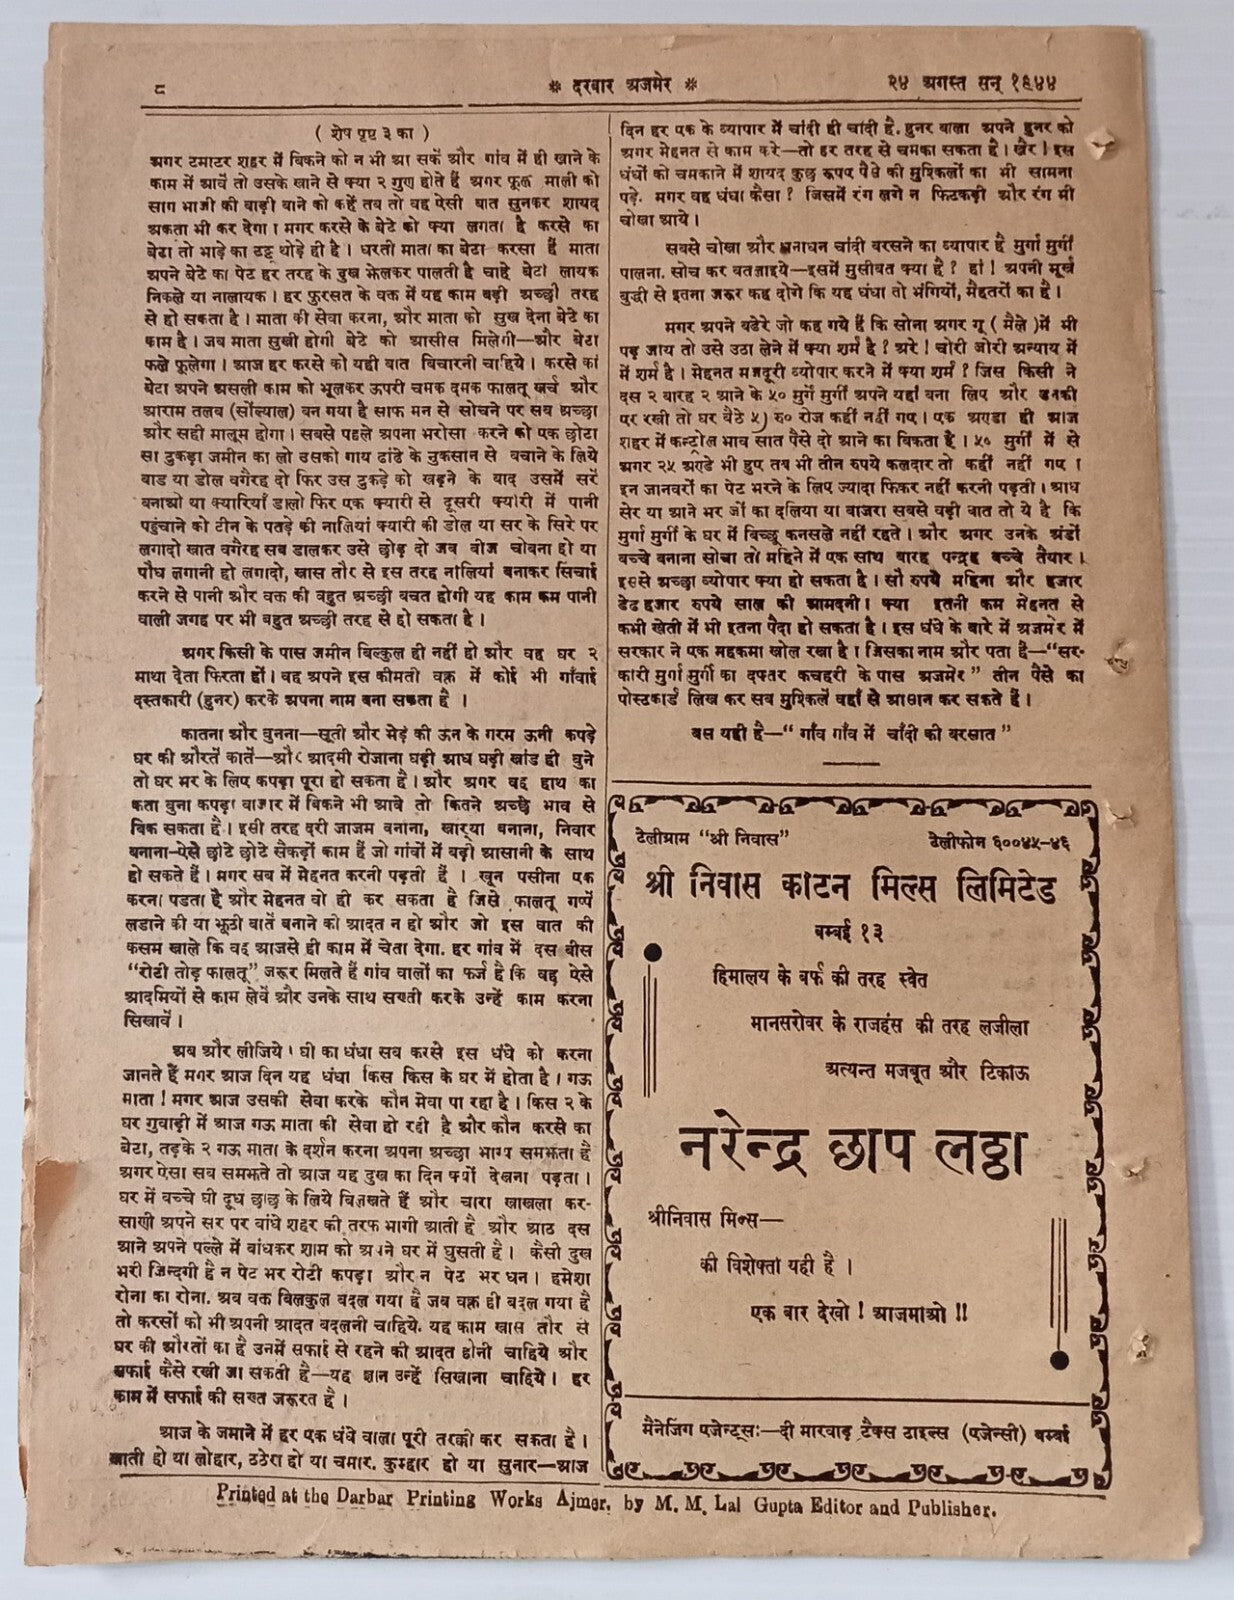 ८
❋ दरबार अजमेर ❋
२४ अगस्त सन् १९४४
( शेष पृष्ट ३ का )
अगर टमाटर शहर में बिकने को न भी आ सकें और गांव में ही खाने के
काम में आवें तो उसके खाने से क्या २ गुण होते हैं अगर फूल माली को
साग भाजी की बाड़ी बाने को कहें तब तो वह ऐसी बात सुनकर शायद
अकता भी कर देगा। मगर करसे के बेटे को क्या लगता है करसे का
बेटा तो भाड़े का टट्टू थोड़े ही है। धरती माता का बेटा करसा हैं माता
अपने बेटे का पेट हर तरह के दुख झेलकर पालती है चाहे बेटा लायक
निकले या नालायक। हर फुरसत के वक्त में यह काम बड़ी अच्छी तरह
से हो सकता है। माता की सेवा करना, और माता को सुख देना बेटे का
काम है। जब माता सुखी होगी बेटे को आसीस मिलेगी—और बेटा
फले फूलेगा। आज हर करसे को यही बात बिचारनी चाहिये। करसे का
बेटा अपने असली काम को भूलकर ऊपरी चमक दमक फालतू खर्च और
आराम तलब (सोंख्याल) बन गया है साफ मन से सोचने पर सब अच्छा
और सही मालूम होगा। सबसे पहले अपना भरोसा करने को एक छोटा
सा टुकड़ा जमीन का लो उसको गाय ढांढे के नुकसान से बचाने के लिये
बाड या डोल वगैरह दो फिर उस टुकड़े को खड़ने के बाद उसमें सरें
बनाओ या क्यारियाँ डालो फिर एक क्यारी से दूसरी क्यारी में पानी
पहुंचाने को टीन के पतड़े की नालियां क्यारी की डोल या सर के सिरे पर
लगादो खात वगैरह सब डालकर उसे छोड़ दो जब बोज चोबना हो या
पौध लगानी हो लगादो, खास तौर से इस तरह नालियां बनाकर सिंचाई
करने से पानी और वक्त की बहुत अच्छी बचत होगी यह काम कम पानी
वाली जगह पर भी बहुत अच्छी तरह से हो सकता है।
अगर किसी के पास जमीन बिल्कुल ही नहीं हो और वह घर २
माथा देता फिरता हो। वह अपने इस कीमती वक्त में कोई भी गाँवाई
दस्तकारी (हुनर) करके अपना नाम बना सकता है ।
कातना और बुनना—सूती और मेड़ की ऊन के गरम ऊनी कपड़े
घर की औरतें कातें—और आदमी रोजाना घड़ी आध घड़ी खांड ही बुने
तो घर भर के लिए कपड़ा पूरा हो सकता है। और अगर वह हाथ का
कता बुना कपड़ा बाजार में बिकने भी आवे तो कितने अच्छे भाव से
बिक सकता है। इसी तरह दरी जाजम बनाना, खारया बनाना, निवार
बनाना-ऐसे छोटे छोटे सैकड़ों काम हैं जो गांवों में बड़ी आसानी के साथ
हो सकते हैं। मगर सब में मेहनत करनी पड़ती है । खून पसीना एक
करना पडता है और मेहनत वो ही कर सकता है जिसे फालतू गप्पें
लडाने की या झूठी बातें बनाने को आदत न हो और जो इस बात की
कसम खाले कि वह आजसे ही काम में चेता देगा. हर गांव में दस बीस
“रोटी तोड़ फालतू” जरूर मिलते हैं गांव वालों का फर्ज है कि वह ऐसे
आदमियों से काम लेवें और उनके साथ सख्ती करके उन्हें काम करना
सिखावें ।
अब और लीजिये। घी का धंधा सब करसे इस धंधे को करना
जानते हैं मगर आज दिन यह धंधा किस किस के घर में होता है। गऊ
माता ! मगर आज उसकी सेवा करके कौन मेवा पा रहा है। किस २ के
घर गुवाड़ी में आज गऊ माता की सेवा हो रही है और कौन करसे का
बेटा, तड़के २ गऊ माता के दर्शन करना अपना अच्छा भाग्य समझता है
अगर ऐसा सब समझते तो आज यह दुख का दिन क्यों देखना पड़ता।
घर में बच्चे घी दूध छाछ के लिये बिलखते हैं और चारा खाखला कर-
साणी अपने सर पर बांधे शहर की तरफ भागी आती है और आठ दस
आने अपने पल्ले में बांधकर शाम को अपने घर में घुसती है। कैसी दुख
भरी जिन्दगी है न पेट भर रोटी कपड़ा और न पेट भर धन। हमेशा
रोना का रोना. अब वक्त बिलकुल बदल गया है जब वक्त ही बदल गया है
तो करसों को भी अपनी आदत बदलनी चाहिये. यह काम खास तौर से
घर की औरतों का है उनमें सफाई से रहने की आदत होनी चाहिये और
सफाई कैसे रखी जा सकती है—यह ज्ञान उन्हें सिखाना चाहिये। हर
काम में सफाई की सख्त जरूरत है।
आज के जमाने में हर एक धंधे वाला पूरी तरक्की कर सकता है।
खाती हो या लोहार, ठठेरा हो या चमार. कुम्हार हो या सुनार—आज
दिन हर एक के व्यापार में चांदी ही चांदी है. हुनर वाला अपने हुनर को
अगर मेहनत से काम करे—तो हर तरह से चमका सकता है। खैर। इस
धंधों को चमकाने में शायद कुछ रूपए पैसे की मुश्किलों का भी सामना
पड़े. मगर वह धंधा कैसा ? जिसमें रंग लगे न फिटकड़ी और रंग भी
चोखा आये।
सबसे चोखा और धनाधन चांदी बरसने का व्यापार है मुर्गा मुर्गी
पालना. सोच कर बतलाइये—इसमें मुसीबत क्या है ? हां ! अपनी मूर्ख
बुद्धी से इतना जरूर कह दोगे कि यह धंधा तो भंगियों, मैहतरों का है।
मगर अपने बढेरे जो कह गये हैं कि सोना अगर गू ( मैले ) में भी
पड़ जाय तो उसे उठा लेने में क्या शर्म है ? अरे ! चोरी जोरी अन्याय में
में शर्म है। मेहनत मजदूरी व्योपार करने में क्या शर्म ? जिस किसी ने
दस २ बारह २ आने के ५० मुर्गे मुर्गी अपने यहां बना लिए और उनकी
पर रखी तो घर बैठे ५) रु० रोज कहीं नहीं गए। एक अण्डा ही आज
शहर में कन्ट्रोल भाव सात पैसे दो आने का बिकता है। ५० मुर्गी में से
अगर २५ अण्डे भी हुए तब भी तीन रुपये कलदार तो कहीं नहीं गए ।
इन जानवरों का पेट भरने के लिए ज्यादा फिकर नहीं करनी पड़ती। आध
सेर या आने भर जों का दलिया या बाजरा सबसे वढ़ी बात तो ये है कि
मुर्गा मुर्गी के घर में बिच्छू कनसले नहीं रहते। और अगर उनके अंडों
बच्चे बनाना सोचा तो महिने में एक साथ बारह पन्द्रह बच्चे तैयार।
इससे अच्छा व्योपार क्या हो सकता है। सौ रुपये महिना और हजार
डेढ हजार रुपये साल की आमदनी। क्या इतनी कम मेहनत से
कभी खेती में भी इतना पैदा हो सकता है। इस धंधे के बारे में अजमेर में
सरकार ने एक महकमा खोल रखा है। जिसका नाम और पता है—“सर-
कारी मुर्गा मुर्गी का दफ्तर कचहरी के पास अजमेर” तीन पैसे का
पोस्टकार्ड लिख कर सब मुश्किलें वहाँ से आसान कर सकते हैं।
बस यही है—“ गाँव गाँव में चाँदी की बरसात ”
टेलीग्राम “श्री निवास”
टेलीफोन ६००४५-४६
श्री निवास काटन मिल्स लिमिटेड
बम्बई १३
हिमालय के बर्फ की तरह स्वेत
मानसरोवर के राजहंस की तरह लजीला
अत्यन्त मजबूत और टिकाऊ
नरेन्द्र छाप लठ्ठा
श्रीनिवास मिल्स—
की विशेषता यही है ।
एक बार देखो ! आजमाओ !!
मैनेजिंग एजेन्ट्सः—दी मारवाड़ टैक्स टाइल्स (एजेन्सी) बम्बई
Printed at the Darbar Printing Works Ajmer, by M. M. Lal Gupta Editor and Publisher.